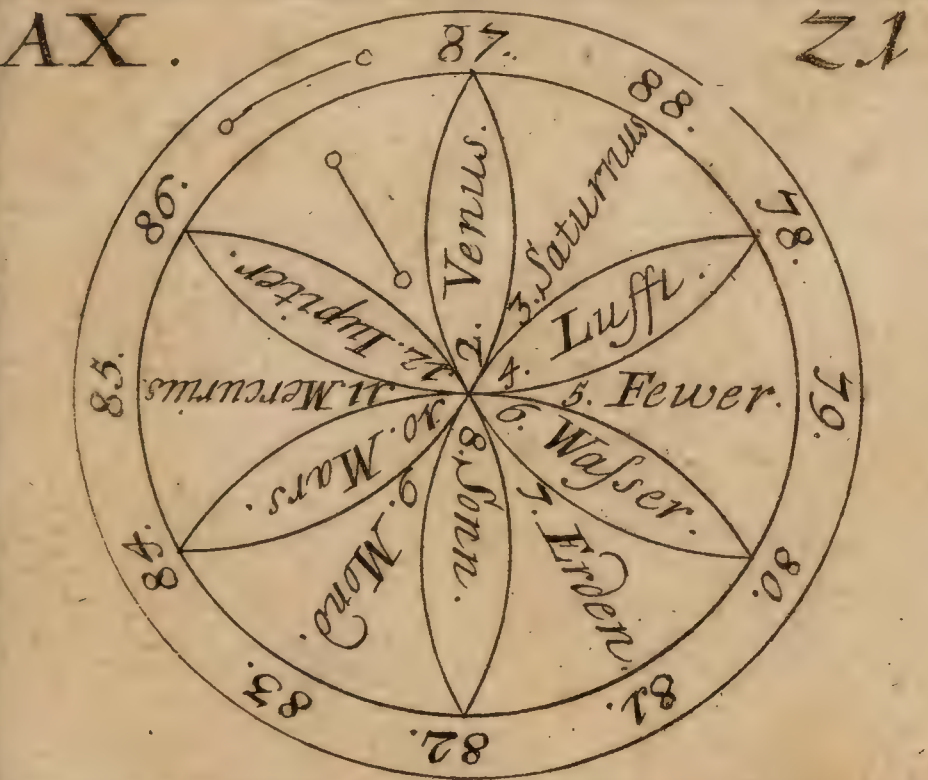 AX.
Z1
87.
88.
78.
79.
80.
81.
82.
83.
84.
85.
86.
2. Venus.
3. Saturnus
4. Lufft.
5. Fewer.
6. Wasser.
7. Erden.
8. Sonn.
9. Mond.
10. Mars.
11 Mercurius.
12. Iupiter.